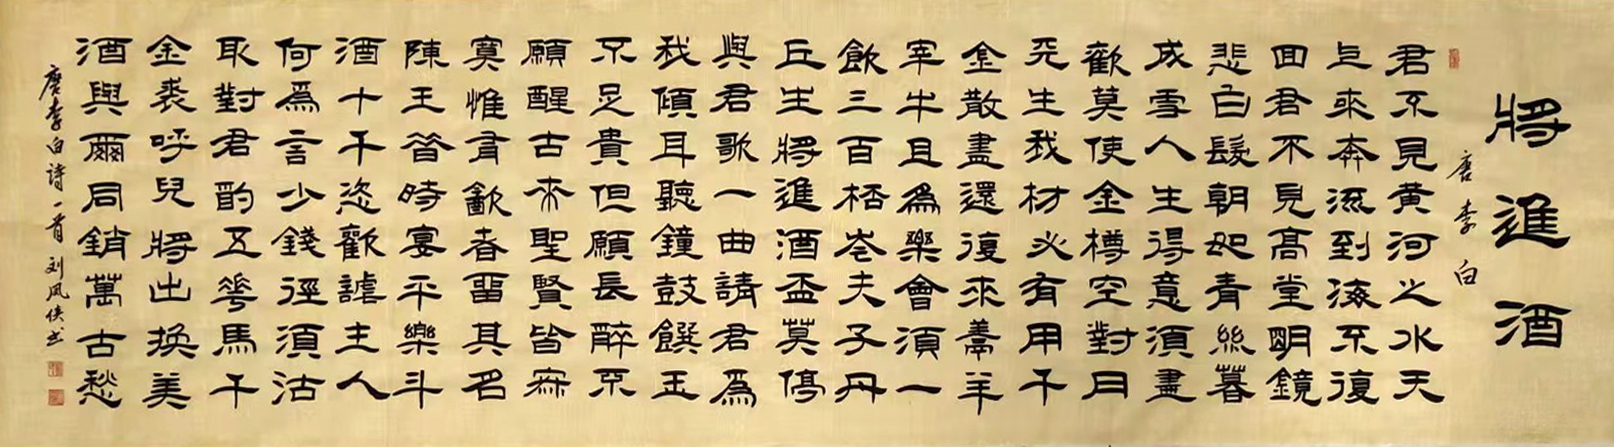 將進酒
唐李白
君不見黃河之水天
上來奔流到海不復
回君不見高堂明鏡
悲白髮朝如青絲暮
成雪人生得意須盡
歡莫使金樽空對月
天生我材必有用千
金散盡還復來烹羊
宰牛且為樂會須一
飲三百杯岑夫子丹
丘生將進酒盃莫停
與君歌一曲請君為
我傾耳聽鐘鼓饌玉
不足貴但願長醉不
願醒古來聖賢皆寂
寞惟有飲者留其名
陳王昔時宴平樂斗
酒十千恣歡謔主人
何為言少錢徑須沽
取對君酌五花馬千
金裘呼兒將出換美
酒與爾同銷萬古愁
唐李白诗一首 刘凤侠书